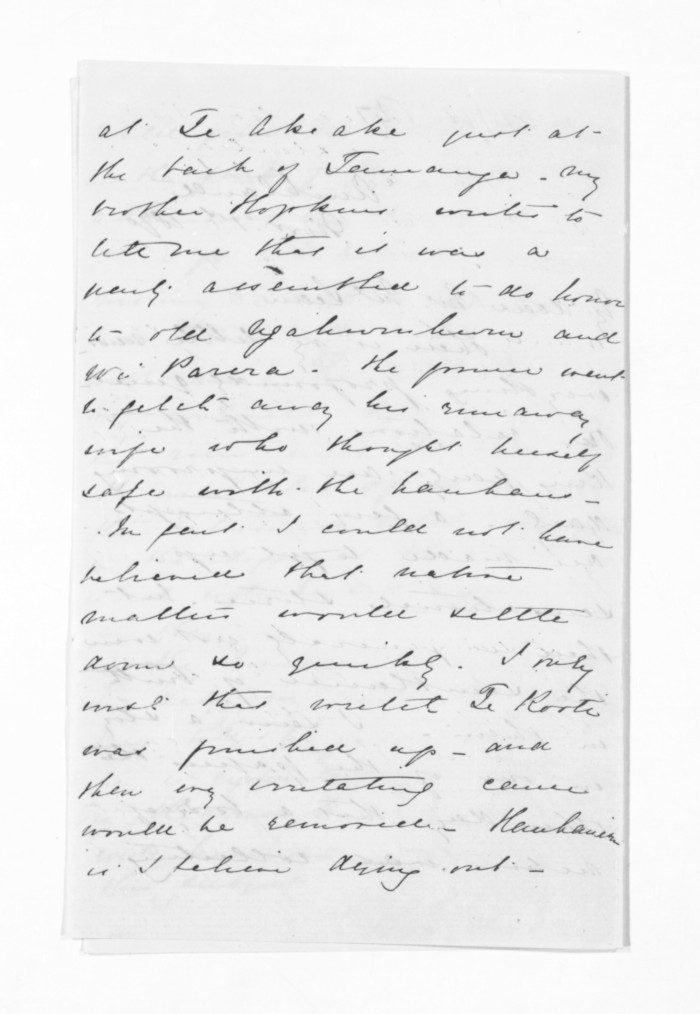 at Te Ake ake just at
the back of Tauranga - my
brother Hopkins writes to
tell me that it was a
party assembled to do honor
to old Ngahuruhuru and
Wi Parera. The former went
to fetch away his runaway
wife who thought herself
safe with the hauhaus -
In fact I could not have
believed that native
matters would settle
down so quickly. I only
wish that wretch Te Kooti
was finished up - and
then every irritating cause
would be removed - Hauhauism
is I believe dying out -